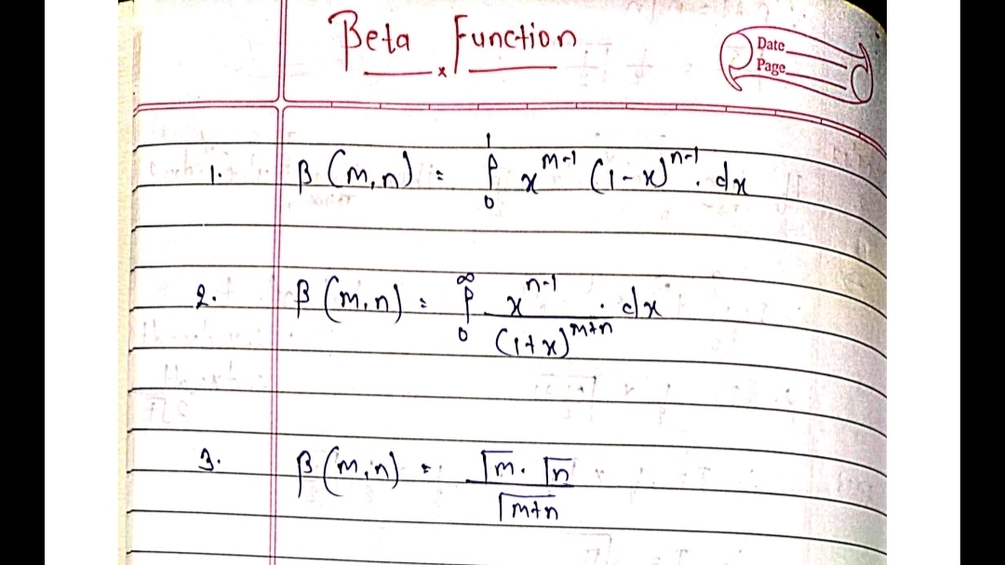 Beta Function
Date
Page
1. β(m,n) = ∫₀¹ x^(m-1) (1-x)^(n-1) . dx
2. β(m,n) = ∫₀^∞ x^(n-1) / (1+x)^(m+n) . dx
3. β(m,n) = Γm . Γn / Γm+n